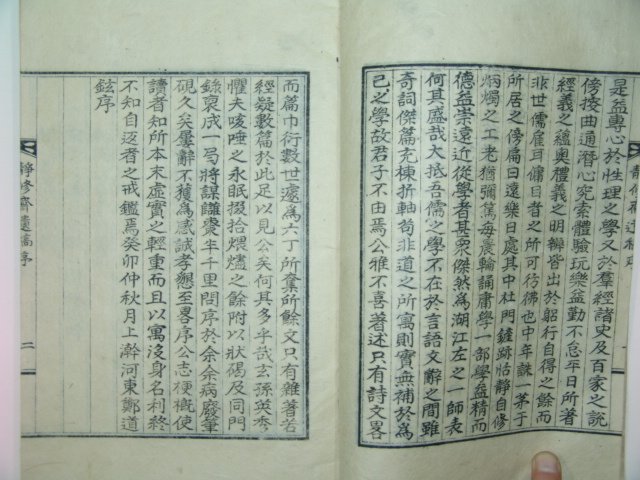 是益專心於性理之學又於羣經諸史及百家之說
傍搜曲通潛心究索體驗玩樂益勤不怠平日所著
經義之蘊奧禮義之明辯皆出於躬行自得之餘而
非世儒雇耳傭目者之所可彷彿也中年誅一茅于
所居之傍扁曰遠樂日處其中杜門鏟跡恬靜自修
炳燭之工老猶彌篤每晨輪誦庸學一部學益精而
德益崇遠近從學者甚衆傑然爲湖江左之一師表
何其盛哉大抵吾儒之學不在於言語文辭之間雖
奇詞傑篇充棟折軸苟非道之所寓則實無補於爲
己之學故君子不由焉公雅不喜著述只有詩文畧
而篇巾衍數世遽爲六丁所奪所餘文只有雜著若
經疑數篇於此足以見公矣何其多乎哉玄孫英秀
懼夫咳唾之永眠掇拾煨燼之餘附以狀碣及同門
錄裒成一局將謀讎棗半千里問序於余余病廢筆
硯久矣屢辭不獲爲感誠孝懇至畧序公志梗槪使
讀者知所本末虛實之輕重而且以寓沒身名利終
不知自返者之戒鑑焉癸卯仲秋月上澣河東鄭道
鉉序
靜修齋遺稿序
二